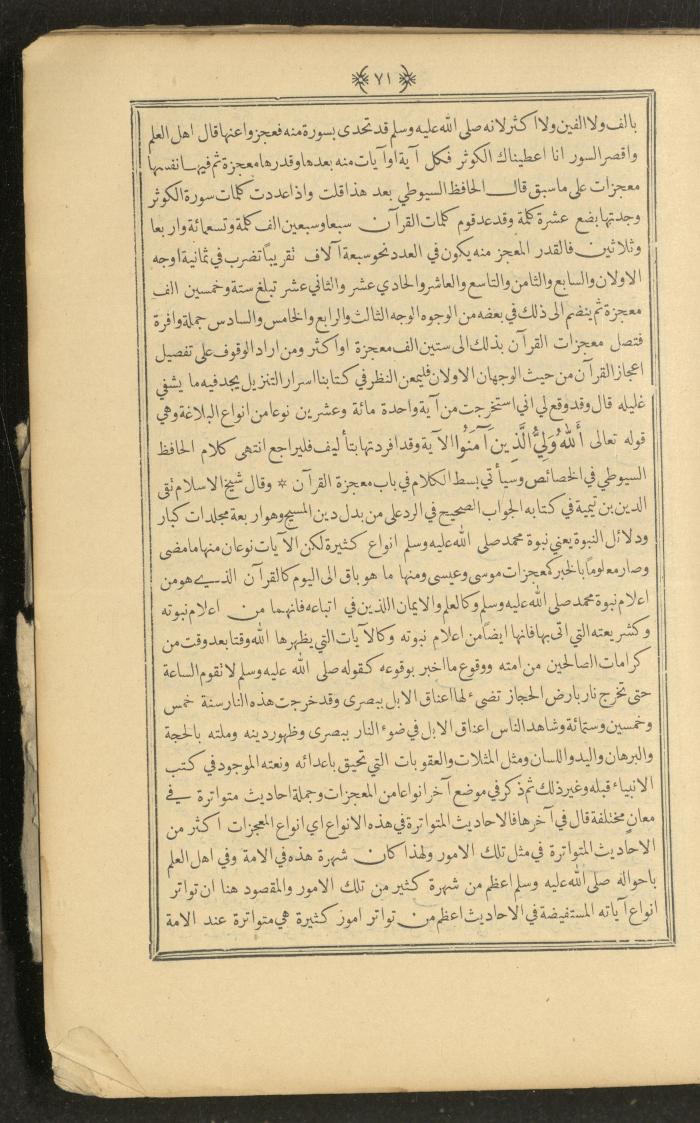 ﴿ ٧١ ﴾
بالف ولا الفين ولا اكثر لانه صلى الله عليه وسلم قد تحدى بسورة منه فعجزوا عنها قال اهل العلم
واقصر السور انا اعطيناك الكوثر فكل آية او آيات منه بعدها وقدرها معجزة ثم فيها نفسها
معجزات على ما سبق قال الحافظ السيوطي بعد هذا قلت واذا عددت كلمات سورة الكوثر
وجدتها بضع عشرة كلمة وقد عد قوم كلمات القرآن سبعا وسبعين الف كلمة وتسعمائة واربعا
وثلاثين فالقدر المعجز منه يكون في العدد نحو سبعة آلاف تقريباً تضرب في ثمانية اوجه
الاولان والسابع والثامن والتاسع والعاشر والحادي عشر والثاني عشر تبلغ ستة وخمسين الف
معجزة ثم ينضم الى ذلك في بعضه من الوجوه الوجه الثالث والرابع والخامس والسادس جملة وافرة
فتصل معجزات القرآن بذلك الى ستين الف معجزة او اكثر ومن اراد الوقوف على تفصيل
اعجاز القرآن من حيث الوجهان الاولان فليمعن النظر في كتابنا اسرار التنزيل يجد فيه ما يشفي
غليله قال وقد وقع لي اني استخرجت من آية واحدة مائة وعشرين نوعا من انواع البلاغة وهي
قوله تعالى أَللهُ وَلِيُّ الَّذِينَ آمَنُوا الآية وقد افردتها بتأليف فليراجع انتهى كلام الحافظ
السيوطي في الخصائص وسيأتي بسط الكلام في باب معجزة القرآن * وقال شيخ الاسلام تقى
الدين بن تيمية في كتابه الجواب الصحيح في الرد على من بدل دين المسيح وهو اربعة مجلدات كبار
ودلائل النبوة يعني نبوة محمد صلى الله عليه وسلم انواع كثيرة لكن الآيات نوعان منها ما مضى
وصار معلوماً بالخبر كمعجزات موسى وعيسى ومنها ما هو باق الى اليوم كالقرآن الذي هو من
اعلام نبوة محمد صلى الله عليه وسلم وكالعلم والايمان اللذين في اتباعه فانهما من اعلام نبوته
وكشريعته التي اتى بها فانها ايضاً من اعلام نبوته وكالآيات التي يظهرها الله وقتا بعد وقت من
كرامات الصالحين من امته ووقوع ما اخبر بوقوعه كقوله صلى الله عليه وسلم لا تقوم الساعة
حتى تخرج نار بارض الحجاز تضيء لها اعناق الابل ببصرى وقد خرجت هذه النار سنة خمس
وخمسين وستمائة وشاهد الناس اعناق الابل في ضوء النار ببصرى وظهور دينه وملته بالحجة
والبرهان واليد واللسان ومثل المثلات والعقوبات التي تحيق باعدائه ونعته الموجود في كتب
الانبياء قبله وغير ذلك ثم ذكر في موضع آخر انواعا من المعجزات وجملة احاديث متواترة في
معانٍ مختلفة قال في آخرها فالاحاديث المتواترة في هذه الانواع اي انواع المعجزات اكثر من
الاحاديث المتواترة في مثل تلك الامور ولهذا كان شهرة هذه في الامة وفي اهل العلم
باحواله صلى الله عليه وسلم اعظم من شهرة كثير من تلك الامور والمقصود هنا ان تواتر
انواع آياته المستفيضة في الاحاديث اعظم من تواتر امور كثيرة هي متواترة عند الامة